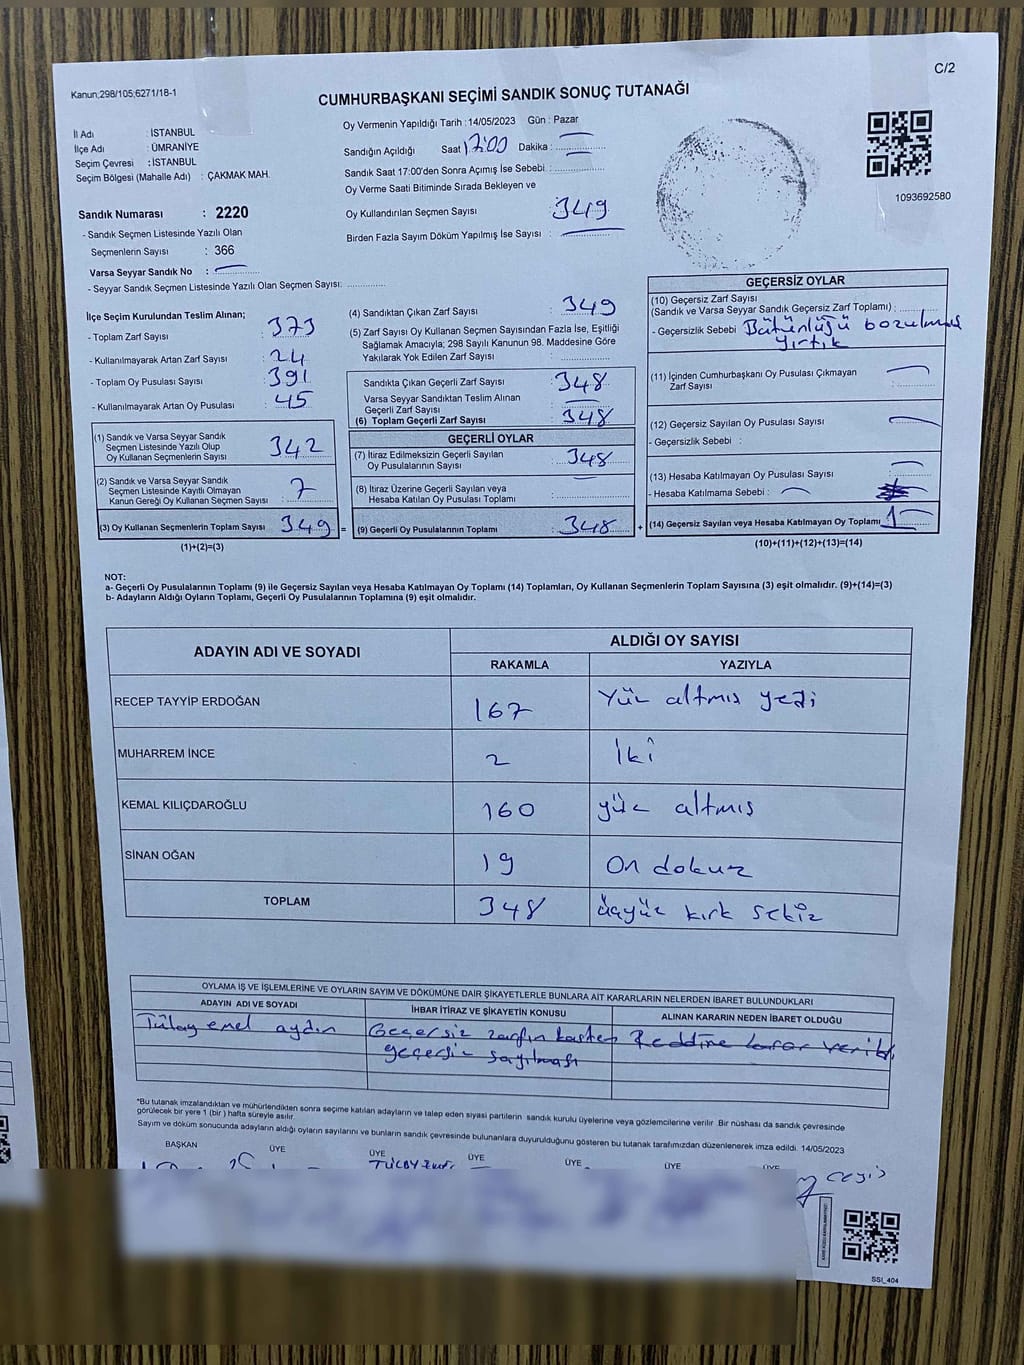 C/2
Kanun;298/105;6271/18-1
CUMHURBAŞKANI SEÇİMİ SANDIK SONUÇ TUTANAĞI
İl Adı : İSTANBUL
İlçe Adı : ÜMRANİYE
Seçim Çevresi : İSTANBUL
Seçim Bölgesi (Mahalle Adı) : ÇAKMAK MAH.
Sandık Numarası : 2220
- Sandık Seçmen Listesinde Yazılı Olan
Seçmenlerin Sayısı : 366
Varsa Seyyar Sandık No :
- Seyyar Sandık Seçmen Listesinde Yazılı Olan Seçmen Sayısı:
Oy Vermenin Yapıldığı Tarih : 14/05/2023 Gün : Pazar
Sandığın Açıldığı Saat 17:00 Dakika :
Sandık Saat 17:00'den Sonra Açımış İse Sebebi :
Oy Verme Saati Bitiminde Sırada Bekleyen ve
Oy Kullandırılan Seçmen Sayısı 349
Birden Fazla Sayım Döküm Yapılmış İse Sayısı :
1093692580
İlçe Seçim Kurulundan Teslim Alınan;
- Toplam Zarf Sayısı : 373
- Kullanılmayarak Artan Zarf Sayısı : 24
- Toplam Oy Pusulası Sayısı : 391
- Kullanılmayarak Artan Oy Pusulası : 45
(1) Sandık ve Varsa Seyyar Sandık
Seçmen Listesinde Yazılı Olup
Oy Kullanan Seçmenlerin Sayısı : 342
(2) Sandık ve Varsa Seyyar Sandık
Seçmen Listesinde Kayıtlı Olmayan
Kanun Gereği Oy Kullanan Seçmen Sayısı : 7
(3) Oy Kullanan Seçmenlerin Toplam Sayısı : 349 =
(1)+(2)=(3)
(4) Sandıktan Çıkan Zarf Sayısı : 349
(5) Zarf Sayısı Oy Kullanan Seçmen Sayısından Fazla İse, Eşitliği
Sağlamak Amacıyla; 298 Sayılı Kanunun 98. Maddesine Göre
Yakılarak Yok Edilen Zarf Sayısı :
Sandıkta Çıkan Geçerli Zarf Sayısı : 348
Varsa Seyyar Sandıktan Teslim Alınan
Geçerli Zarf Sayısı :
(6) Toplam Geçerli Zarf Sayısı : 348
GEÇERLİ OYLAR
(7) İtiraz Edilmeksizin Geçerli Sayılan
Oy Pusulalarının Sayısı : 348
(8) İtiraz Üzerine Geçerli Sayılan veya
Hesaba Katılan Oy Pusulası Toplamı :
(9) Geçerli Oy Pusulalarının Toplamı : 348 +
GEÇERSİZ OYLAR
(10) Geçersiz Zarf Sayısı
(Sandık ve Varsa Seyyar Sandık Geçersiz Zarf Toplamı) :
- Geçersizlik Sebebi : Bütünlüğü bozulmuş
yırtık
(11) İçinden Cumhurbaşkanı Oy Pusulası Çıkmayan
Zarf Sayısı
(12) Geçersiz Sayılan Oy Pusulası Sayısı
- Geçersizlik Sebebi :
(13) Hesaba Katılmayan Oy Pusulası Sayısı
- Hesaba Katılmama Sebebi :
(14) Geçersiz Sayılan veya Hesaba Katılmayan Oy Toplamı 1
(10)+(11)+(12)+(13)=(14)
NOT:
a- Geçerli Oy Pusulalarının Toplamı (9) ile Geçersiz Sayılan veya Hesaba Katılmayan Oy Toplamı (14) Toplamları, Oy Kullanan Seçmenlerin Toplam Sayısına (3) eşit olmalıdır. (9)+(14)=(3)
b- Adayların Aldığı Oyların Toplamı, Geçerli Oy Pusulalarının Toplamına (9) eşit olmalıdır.
ADAYIN ADI VE SOYADI ALDIĞI OY SAYISI
RAKAMLA YAZIYLA
RECEP TAYYİP ERDOĞAN 167 Yüz altmış yedi
MUHARREM İNCE 2 İki
KEMAL KILIÇDAROĞLU 160 yüz altmış
SİNAN OĞAN 19 On dokuz
TOPLAM 348 üçyüz kırk sekiz
OYLAMA İŞ VE İŞLEMLERİNE VE OYLARIN SAYIM VE DÖKÜMÜNE DAİR ŞİKAYETLERLE BUNLARA AİT KARARLARIN NELERDEN İBARET BULUNDUKLARI
ADAYIN ADI VE SOYADI İHBAR İTİRAZ VE ŞİKAYETİN KONUSU ALINAN KARARIN NEDEN İBARET OLDUĞU
Tülay emel aydın Geçersiz zarfın kasten Reddine karar verildi
geçersiz sayılması
*Bu tutanak imzalandıktan ve mühürlendikten sonra seçime katılan adayların ve talep eden siyasi partilerin sandık kurulu üyelerine veya gözlemcilerine verilir. Bir nüshası da sandık çevresinde
görülecek bir yere 1 (bir ) hafta süreyle asılır.
Sayım ve döküm sonucunda adayların aldığı oyların sayılarını ve bunların sandık çevresinde bulunanlara duyurulduğunu gösteren bu tutanak tarafımızdan düzenlenerek imza edildi. 14/05/2023
BAŞKAN ÜYE ÜYE ÜYE ÜYE ÜYE ÜYE
SSI_404